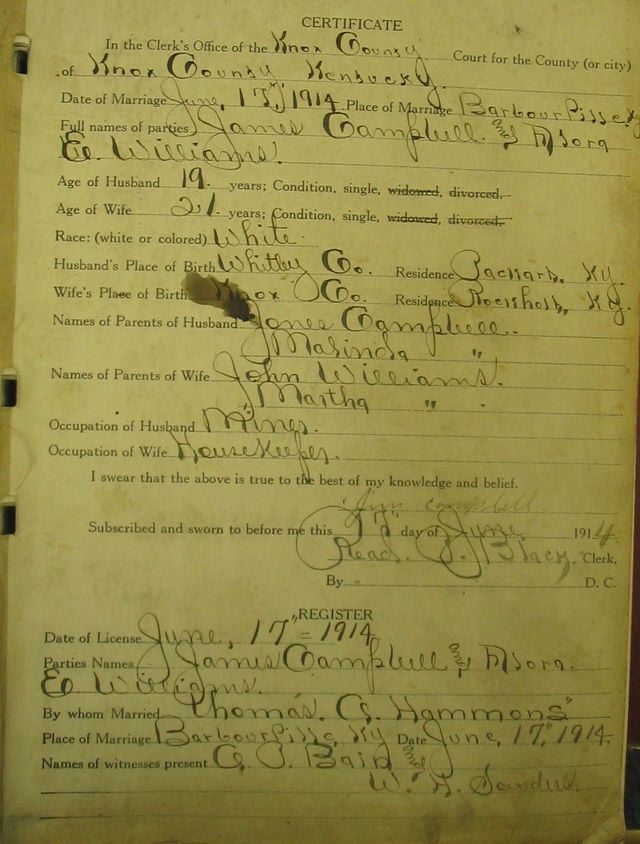 CERTIFICATE
In the Clerk's Office of the Knox County Court for the County (or city)
of Knox County Kentucky.
Date of Marriage June, 17", 1914 Place of Marriage Barbourville, Ky
Full names of parties James Campbell & Flora
E. Williams.
Age of Husband 19. years; Condition, single, widowed, divorced.
Age of Wife 21. years; Condition, single, widowed, divorced.
Race: (white or colored) White.
Husband's Place of Birth Whitley Co. Residence Packard, Ky.
Wife's Place of Birth Knox Co. Residence Rockhold, Ky.
Names of Parents of Husband James Campbell.
Malinda "
Names of Parents of Wife John Williams.
Martha " .
Occupation of Husband Miner.
Occupation of Wife Housekeeper.
I swear that the above is true to the best of my knowledge and belief.
Jim Campbell
Subscribed and sworn to before me this 17 day of June 1914
Read P. Black, Clerk,
By D. C.
REGISTER
Date of License June, 17" = 1914.
Parties Names James Campbell & Flora.
E. Williams.
By whom Married Thomas. Hammons
Place of Marriage Barbourville, Ky Date June, 17", 1914.
Names of witnesses present Bain &
W.